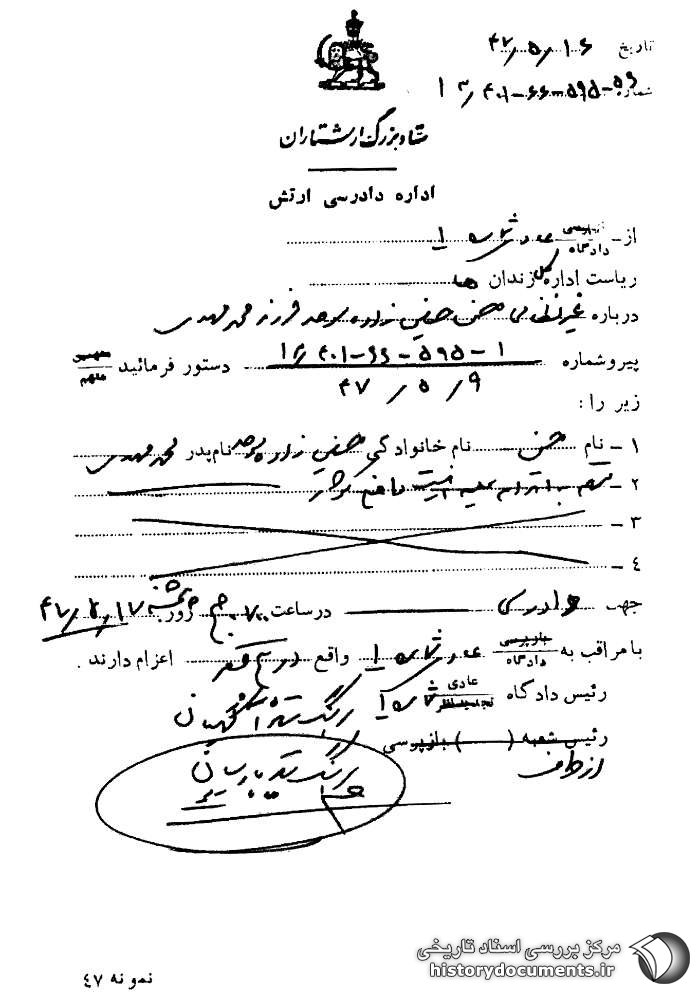 تاریخ ۴۷/۵/۱۶
شماره ۱۲/۴۰۱-۶۶-۵۹۵-۵۹
ستاد بزرگ ارتشتاران
اداره دادرسی ارتش
از - بازپرسی دادگاه عادی شماره ۱
ریاست اداره کل زندان ها
درباره غیرنظامی حسن حسن زاده سرحد فرزند محمدمهدی
پیرو شماره ۱۲/۴۰۱-۶۶-۵۹۵-۱ دستور فرمائید متهمین متهم
۴۷/۵/۹
زیر را :
۱ - نام حسن نام خانوادگی حسن زاده سرحد نام پدر محمدمهدی
۲ - متهم به اقدام علیه امنیت داخلی کشور
۳ -
۴ -
جهت دادرسی در ساعت ۷۰۰ صبح روز پنجشنبه ۴۷/۵/۱۷
با مراقب به بازپرسی دادگاه عادی شماره ۱ واقع در اعزام دارند .
رئیس دادگاه عادی تجدیدنظر شماره ۱
رئیس شعبه ( ) بازپرسی
از طرف
نمونه ۴۷
مرکز بررسی اسناد تاریخی
historydocuments.ir